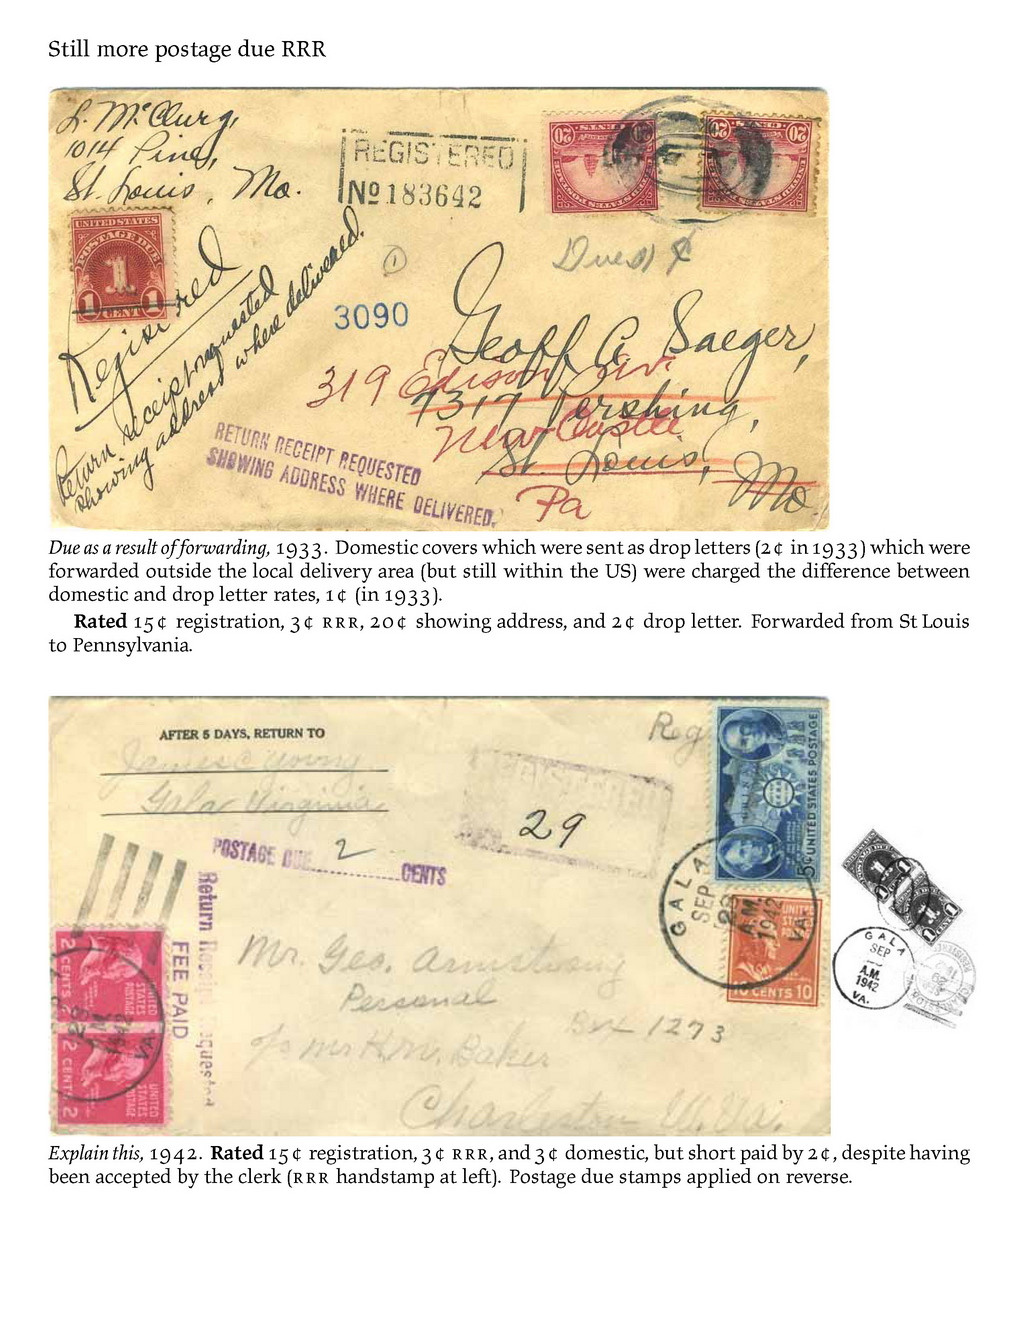 Still more postage due RRR
L. McClurg,
1014 Pine,
St. Louis, Mo.
REGISTERED
No 183642
UNITED STATES
POSTAGE DUE
1
1 CENT 1
20 CENTS 20
20 CENTS 20
Due 1 ¢
1
3090
Registered
Return receipt requested
showing address where delivered.
Geoff A. Saeger,
319 Edison Av.
7317 Pershing,
New Castle
St. Louis,
Pa
Mo.
RETURN RECEIPT REQUESTED
SHOWING ADDRESS WHERE DELIVERED.
Due as a result of forwarding, 1933. Domestic covers which were sent as drop letters (2¢ in 1933) which were
forwarded outside the local delivery area (but still within the US) were charged the difference between
domestic and drop letter rates, 1¢ (in 1933).
Rated 15¢ registration, 3¢ RRR, 20¢ showing address, and 2¢ drop letter. Forwarded from St Louis
to Pennsylvania.
AFTER 5 DAYS, RETURN TO
James C Young
Gala Virginia
Reg
29
POSTAGE DUE 2 CENTS
CHINA
5¢ UNITED STATES POSTAGE
GALA
SEP
28
A.M.
1942
VA.
10 CENTS 10
Return Receipt Requested
FEE PAID
UNITED STATES POSTAGE
2 CENTS 2
UNITED STATES POSTAGE
2 CENTS 2
Mr. Geo. Armstrong
Personal
Box 1273
c/o Mr H.W. Baker
Charleston W. Va.
GALA
SEP
A.M.
1942
VA.
Explain this, 1942. Rated 15¢ registration, 3¢ RRR, and 3¢ domestic, but short paid by 2¢, despite having
been accepted by the clerk (RRR handstamp at left). Postage due stamps applied on reverse.